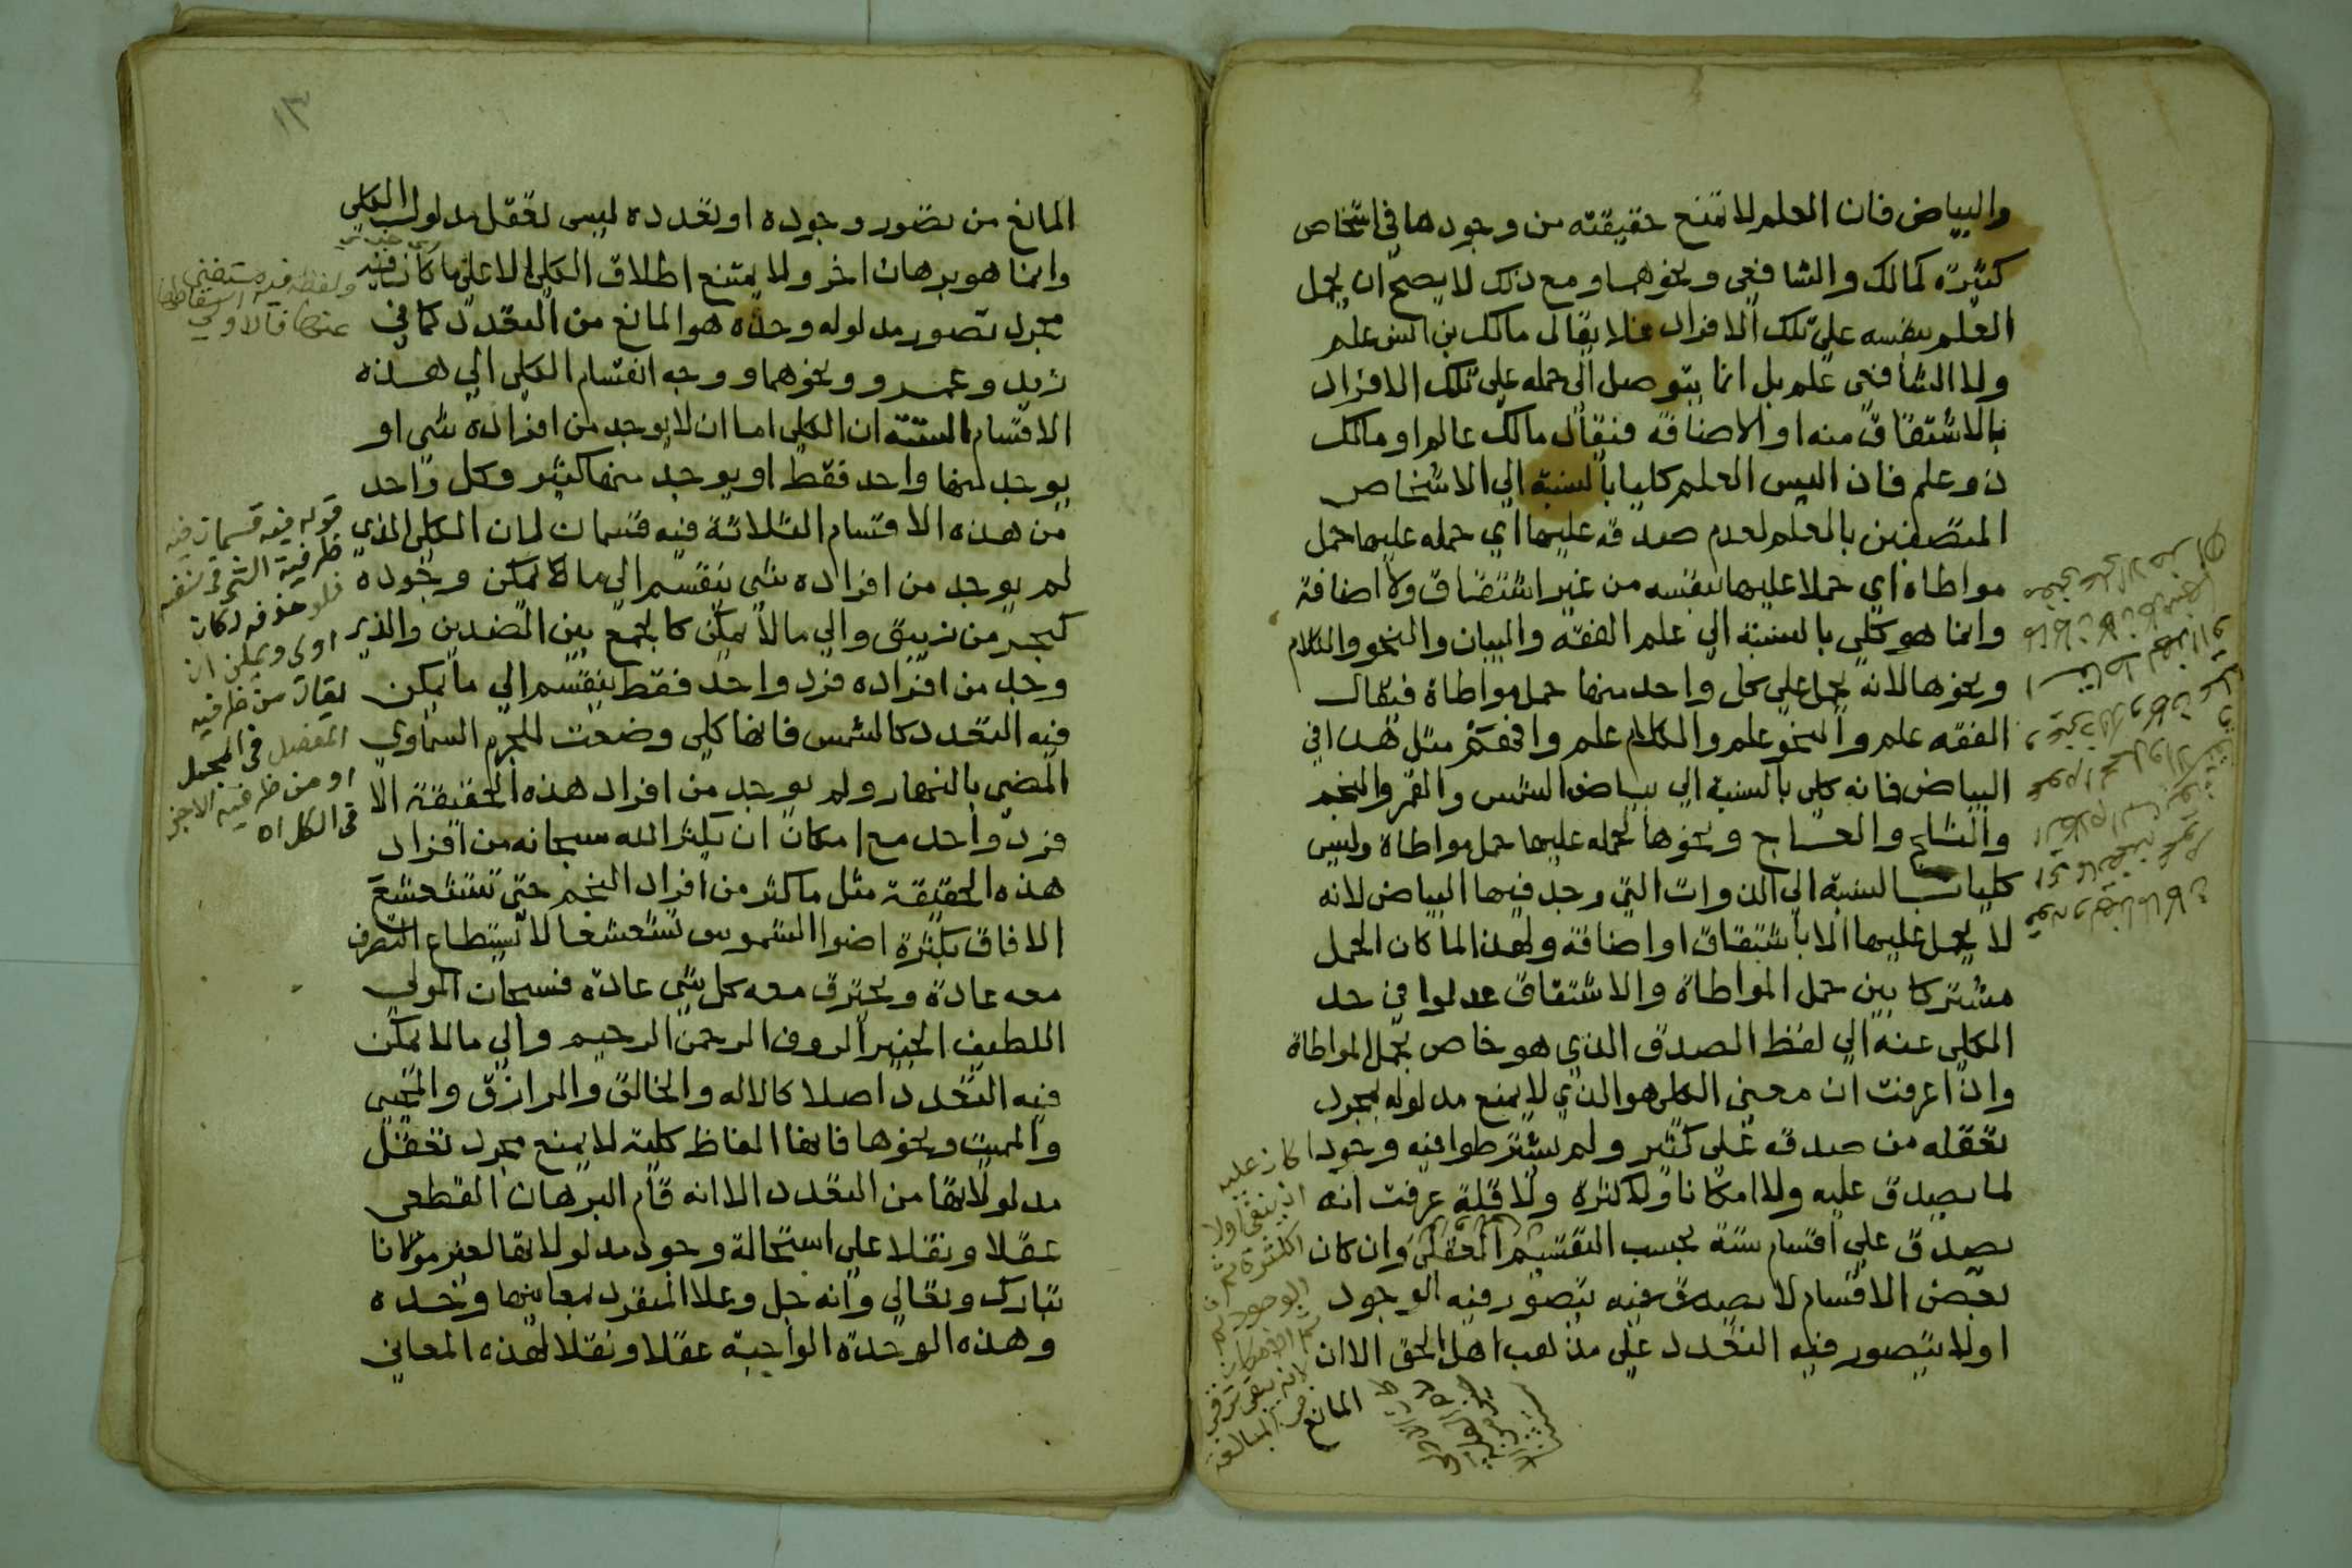 والبياض فان العلم لا تمنع حقيقته من وجودها في اشخاص
كثيرة كمالك والشافعي ونحوهما ومع ذلك لا يصح ان يحمل
العلم بنفسه على تلك الافراد فلا يقال مالك بن انس علم
ولا الشافعي علم بل انما يتوصل الى حمله على تلك الافراد
بالاشتقاق منه او الاضافة فيقال مالك عالم او مالك
ذو علم فاذن ليس العلم كليا بالنسبة الي الاشخاص
المتصفين بالعلم لعدم صدقه عليها اي حمله عليها حمل
مواطاة اي حملا عليها بنفسه من غير اشتقاق ولا اضافة
وانما هو كلي بالنسبة الي علم الفقه والبيان والنحو والكلام
ونحوها لانه يحمل على كل واحد منها حمل مواطاة فيقال
الفقه علم والنحو علم والكلام علم وافهم مثل هذا في
البياض فانه كلي بالنسبة الي بياض الشمس والقمر والنجم
والثلج والعاج ونحوها لحمله عليها حمل مواطاة وليس
كليا بالنسبة الي الذوات التي وجد فيها البياض لانه
لا يحمل عليها الا باشتقاق او اضافة ولهذا لما كان الحمل
مشتركا بين حمل المواطاة والاشتقاق عدلوا في حد
الكلي عنه الي لفظ الصدق الذي هو خاص بحمل المواطاة
واذا عرفت ان معنى الكلي هو الذي لا يمنع مدلوله بمجرد
تعقله من صدقه على كثير ولم يشترطوا فيه وجودا
لما يصدق عليه ولا امكانا ولا كثرة ولا قلة عرفت انه
يصدق على اقسام ستة بحسب التقسيم العقلي وان كان
بعض الاقسام لا يتصور فيه الوجود
او لا يتصور فيه التعدد على مذهب اهل الحق الا ان
المانع
كان عليه
ان ينفي اولا
الكثرة ثم
الوجود ثم
الامكان
١٣
المانع من تصور وجوده او تعدده ليس تعقل مدلول الكلي
وانما هو برهان اخر ولا يمتنع اطلاق الكلي الا على ما كان فيه
مجرد تصور مدلوله وحده هو المانع من التعدد كما في
زيد وعمرو ونحوهما ووجه انقسام الكلي الي هذه
الاقسام الستة ان الكلي اما ان لا يوجد من افراده شي او
يوجد منها واحد فقط او يوجد منها كثير وكل واحد
من هذه الاقسام الثلاثة فيه قسمان لان الكلي الذي
لم يوجد من افراده شي ينقسم الى ما يمكن وجوده
كبحر من زيبق والي ما لا يمكن كالجمع بين الضدين والذي
وجد من افراده فرد واحد فقط ينقسم الي ما يمكن
فيه التعدد كالشمس فانها كلي وضعت للجرم السماوي
المضي بالنهار ولم يوجد من افراد هذه الحقيقة الا
فرد واحد مع امكان ان يكثر الله سبحانه من افراد
هذه الحقيقة مثل ما كثر من افراد النجم حتى تتشعشع
الافاق بكثرة اضوا الشموس تشعشعا لا يستطاع التصرف
معه عادة ويحترق معه كل شي عادة فسبحان المولي
اللطيف الخبير الروف الرحمن الرحيم والي ما لا يمكن
فيه التعدد اصلا كالاله والخالق والرازق والمحيي
والمميت ونحوها فانها الفاظ كلية لا يمنع مجرد تعقل
مدلولاتها من التعدد الا انه قام البرهان القطعي
عقلا ونقلا على استحالة وجود مدلولاتها لغير مولانا
تبارك وتعالي وانه جل وعلا المنفرد بمعانيها وحده
وهذه الوحدة الواجبة عقلا ونقلا لهذه المعاني
قوله فيه قسمان فيه
ظرفية الشي في نفسه
فلو حذفه لكان
اولى ويمكن ان
يقال من ظرفيه
المفصل في المجمل
او من ظرفية الاجزا
في الكل اه